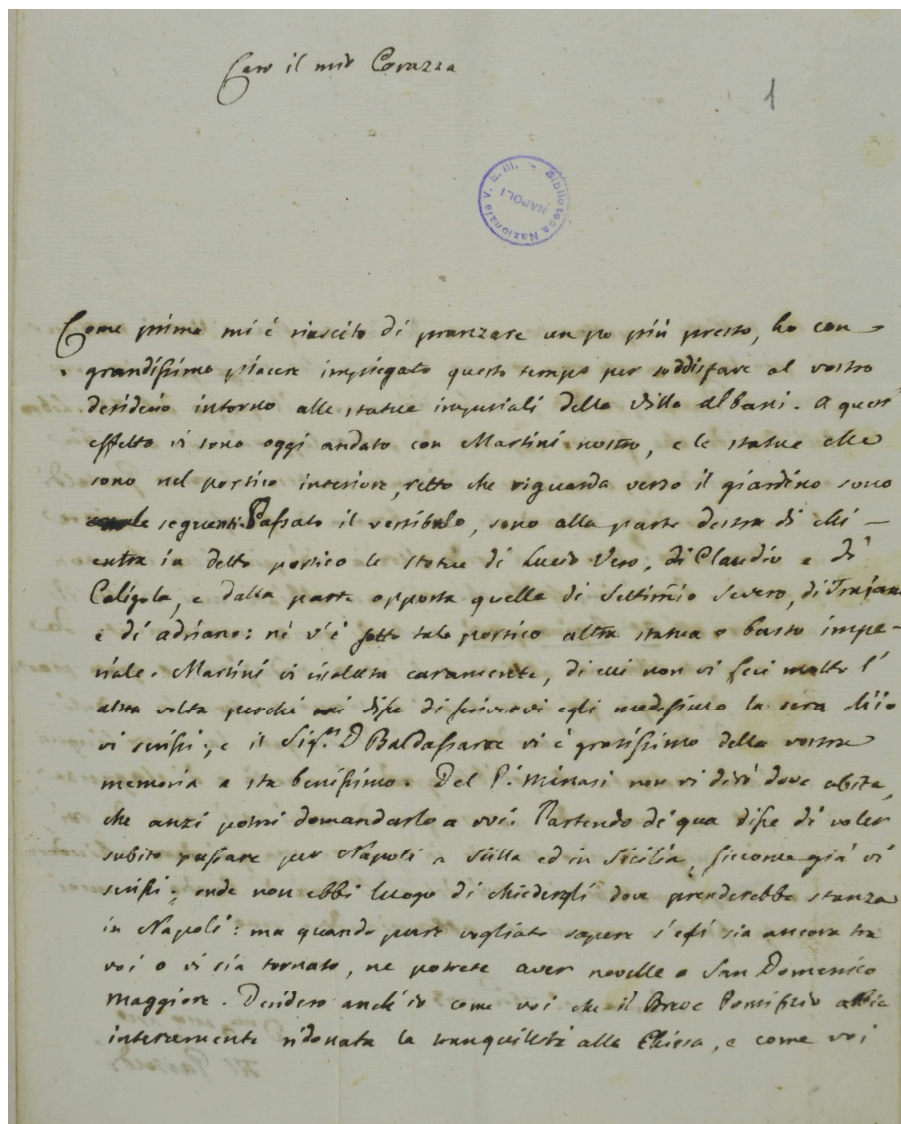 Caro il mio Corazza
1
Biblioteca Nazionale V. E. III. NAPOLI
Come prima mi è riuscito di pranzare un po più presto, ho con
grandissimo piacere impiegato questo tempo per soddisfare al vostro
desiderio intorno alle statue imperiali della Villa Albani. A quest'
effetto vi sono oggi andato con Martini nostro, e le statue che
sono nel portico interiore, retto che riguarda verso il giardino sono
le seguenti. Passato il vestibulo, sono alla parte destra di chi
entra in detto portico le statue di Lucio Vero, di Claudio e di
Caligola, e dalla parte opposta quelle di Settimio Severo, di Trajano
e di Adriano: nè v'è sotto tale portico altra statua o busto impe-
riale. Martini vi risaluta caramente, di cui non vi feci motto l'
altra volta perchè mi disse di scrivervi egli medesimo la sera ch'io
vi scrissi; e il Sig.r D Baldassarre vi è gratissimo della vostra
memoria e sta benissimo. Del P. Minasi non vi dirò dove abita,
che anzi potrei domandarlo a voi. Partendo di qua disse di voler
subito passare per Napoli a Scilla ed in Sicilia, siccome già vi
scrissi; onde non ebbi luogo di chiedergli dove prenderebbe stanza
in Napoli: ma quando pure vogliate sapere s'essi sia ancora tra
voi o vi sia tornato, ne potrete aver novelle a San Domenico
Maggiore. Desidero anch'io come voi che il Breve Pontifizio abbia
interamente ridonata la tranquillità alla Chiesa, e come voi